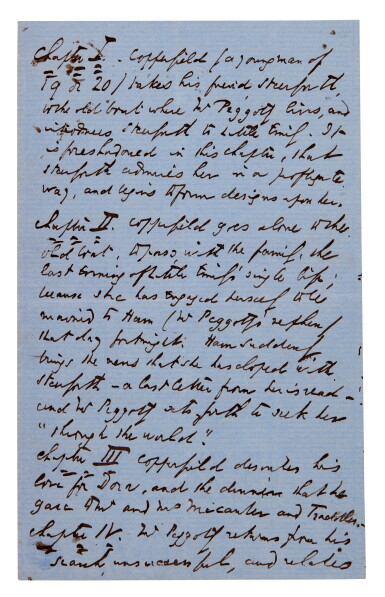 Chapter I. Copperfield (a young man of
19 or 20) takes his friend Steerforth,
to the old boat where Mr Peggotty lives, and
introduces Steerforth to Little Emily. It
is foreshadowed in this chapter, that
Steerforth admires her in a profligate
way, and begins to form designs upon her.
Chapter II. Copperfield goes alone to the
old boat, to pass with the family the
last evening of little Emily's single life;
because she has engaged herself to be
married to Ham (Mr Peggotty's nephew)
that day fortnight. Ham suddenly
brings the news that she has eloped with
Steerforth – a last letter from her is read –
and Mr Peggotty sets forth to seek her
"through the world."
Chapter III Copperfield describes his
love for Dora, and the dinner that he
gave to Mr and Mrs Micawber and Traddles.
Chapter IV. Mr Peggotty returns from his
search, unsuccessful, and relates